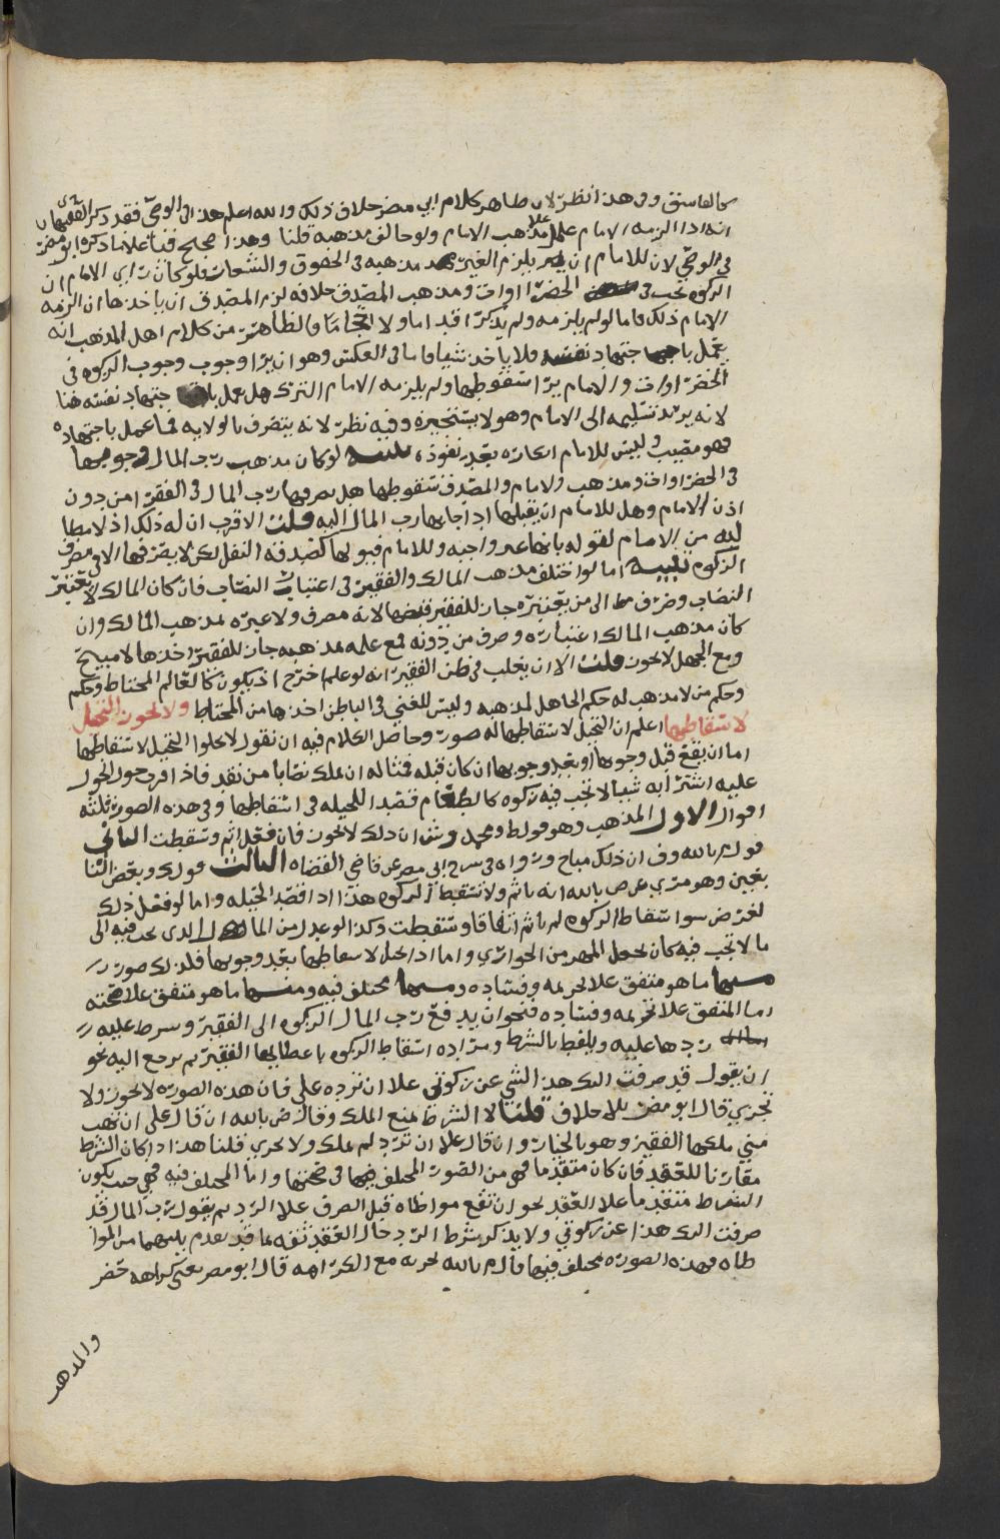 وفي هذا نظر لان ظاهر كلام ابي مضر خلاف ذلك والله اعلم هذا في الوصي فقد ذكر الفقيهان
انه اذا الزمه الامام عمل بمذهب الامام ولو خالف مذهبه قلنا وهذا صحيح قلنا علا ما ذكره ابو مضر
في الوصي لان للامام ان يلزم الغير مذهبه في الحقوق والشعار فلو كان راي الامام ان
الزكوه تجب في الخضراوات ومذهب المصدق خلافه لزم المصدق ان ياخذها ان الزمه
الامام ذلك فاما لو لم يلزمه ولم يذكر اقداما ولا احجاما فالظاهر من كلام اهل المذهب انه
يعمل باجتهاد نفسه فلا ياخذ شيا فاما في العكس وهو ان يرا وجوب الزكوه في
الخضراوات والامام يرا سقوطها ولم يلزمه الامام الترك هل يعمل باجتهاد نفسه هنا
لانه يريد تسليمه الى الامام وهو لا يستجيزه وفيه نظر لانه يتصرف بالولايه فما عمل باجتهاده
فهو مصيب وليس للامام انكاره بعد نفوذه تنبيه لو كان مذهب رب المال وجوبها
في الخضراوات ومذهب الامام والمصدق سقوطها هل يصرفها رب المال في الفقرا من دون
اذن الامام وهل للامام ان يقبلها اذا جا بها رب المال اليه قلت الاقرب ان له ذلك اذ لا مطالبه
من الامام لقوله بانها غير واجبه وللامام قبولها كصدقه النفل لكن لا يصرفها الا في مصرف
الزكوه تنبيه اما لو اختلف مذهب المالك والفقير في اعتبار النصاب فان كان المالك لا يعتبر
النصاب وصرف الى من يعتبره جاز للفقير قبضها لانه مصرف ولا عبره بمذهب المالك وان
كان مذهب المالك اعتباره وصرف من دونه فمع علمه بمذهبه جاز للفقير اخذها لا مبيح
ومع الجهل لا يجوز قلت الا ان يغلب في ظن الفقير انه لو علم اخرج اذ يكون كالعالم المحتاط وحكم
وحكم من لا مذهب له حكم الجاهل لمذهبه وليس للغني في الباطن اخذها من المحتاط ولا يجوز التحيل
لاسقاطها اعلم ان التحيل لاسقاطها له صور وحاصل الكلام فيه ان نقول لا يخلوا التحيل لاسقاطها
اما ان يقع قبل وجوبها او بعد وجوبها ان كان قبله فمثاله ان يملك نصابا من نقد فاذا قرب حول الحول
عليه اشترا به شيا لا تجب فيه زكوه كالطعام قصدا للحيله في اسقاطها وفي هذه الصوره ثلثه
اقوال الاول المذهب وهو قول ط ومحمد وش ان ذلك لا يجوز فان فعل اثم وسقطت الثاني
قول م بالله وف ان ذلك مباح ورواه في شرح ابي مضر عن قاضي القضاه الثالث قول ك وبعض التا
بعين وهو مروي عن ص بالله انه ياثم ولا تسقط الزكوه هذا اذا قصد الحيله واما لو فعل ذلك
لغرض سوا اسقاط الزكوه لم ياثم اتفاقا وسقطت وكذا لو عدل من المال الذي تجب فيه الى
ما لا تجب فيه كان يجعل المهر من الجواري واما اذا تحيل لاسقاطها بعد وجوبها فلذلك صور
منها ما هو متفق علا تحريمه وفساده ومنها مختلف فيه ومنها ما هو متفق علا صحته
اما المتفق علا تحريمه وفساده فنحو ان يدفع رب المال الزكوه الى الفقير وشرط عليه
ردها عليه ويلفظ بالشرط ومراده اسقاط الزكوه باعطايها الفقير ثم ترجع اليه نحو
ان يقول قد صرفت اليك هذا الشي عن زكوتي علا ان ترده علي فان هذه الصوره لا تجوز ولا
تجزي قال ابو مضر بلا خلاف قلنا لا الشرط يمنع الملك وقال ض بالله ان قال على ان تهب
مني ملكها الفقير وهو بالخيار وان قال علا ان ترد لم يملك ولا يجزي قلنا هذا اذا كان الشرط
مقارنا للعقد فان كان متقدما فهي من الصور المختلف فيها في صحتها واما المختلف فيه فهي حيث يكون
الشرط متقدما علا العقد نحو ان تقع مواطاه قبل الصرف علا الرد ثم يقول رب المال قد
صرفت اليك هذا عن زكوتي ولا يذكر شرط الرد حال العقد ثقه بما قد تقدم بينهما من الموا
طاه فهذه الصوره مختلف فيها قال م بالله تجزيه مع الكراهه قال ابو مضر يعني كراهه حضر
والمذهب